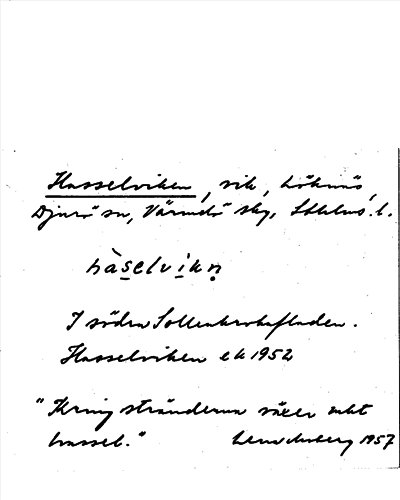 Hasselviken, vik, Löknäs,
Djurö sn, Värmdö skg, Sthlms l.
hàselvikn̥
I södra Sollenkrokafladen.
Hasselviken ek 1952
"Kring stränderna växer mkt
hassel." 1957